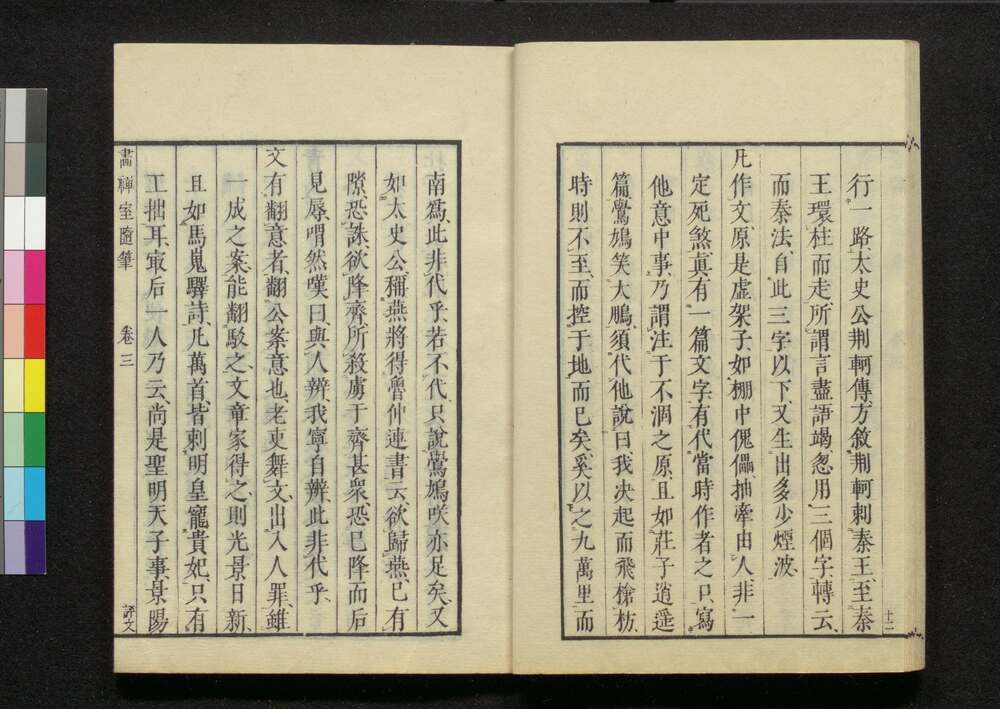 行一路、太史公荆軻傳、方敘荆軻刺秦王至秦
王環柱而走、所謂言盡語竭、忽用三個字轉云、
而秦法、自此三字以下、又生出多少煙波
凡作文、原是虚架子、如棚中傀儡、抽牽由人、非一
定死煞真、有一篇文字、有代當時作者之口、寫
他意中事、乃謂注于不涸之原、且如莊子逍遥
篇、鷽鳩笑大鵬、須代他說曰、我决起而飛、槍枋、
時則不至、而控于地而已矣、奚以之九萬里而
十二
南爲、此非代乎、若不代、只說鷽鳩咲亦足矣、又
如太史公稱燕將得魯仲連書云、欲歸燕、已有
隙、恐誅、欲降齊、所殺虜于齊甚衆、恐已降而后
見辱、喟然嘆曰、與人辨、我寧自辨、此非代乎、
文有翻意者、翻公案意也、老吏舞文、出入人罪、雖
一成之案、能翻駁之、文章家得之、則光景日新、
且如馬嵬驛詩、凡萬首、皆刺明皇寵貴妃、只有
工拙耳、㝡后一人乃云、尚是聖明天子事、景陽
畵禪室隨筆 卷三 評文